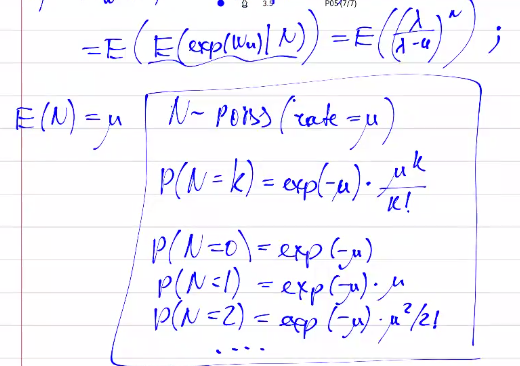 3.9 P05(7/7)
= E( E(exp(Wu)|N) ) = E( (λ/(λ-u))^N ) ;
E(N) = μ
N ~ POISS (rate = μ)
P(N=k) = exp(-μ) · μ^k/k!
P(N=0) = exp(-μ)
P(N=1) = exp(-μ) · μ
P(N=2) = exp(-μ) · μ²/2!
....